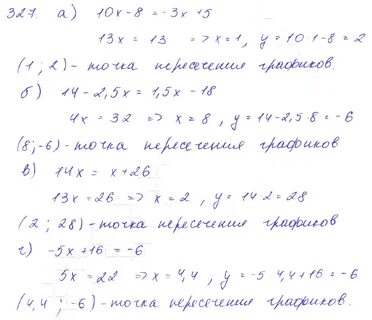 327. а) 10x-8=-3x+5
13x = 13 => x=1, y=10·1-8=2
(1; 2) - точка пересечения графиков.
б) 14-2,5x=1,5x-18
4x=32 => x=8, y=14-2,5·8=-6
(8;-6) - точка пересечения графиков
в) 14x = x+26
13x=26 => x=2, y=14·2=28
(2; 28) - точка пересечения графиков
г) -5x+16=-6
5x=22 => x=4,4, y=-5·4,4+16=-6
(4,4; -6) - точка пересечения графиков.